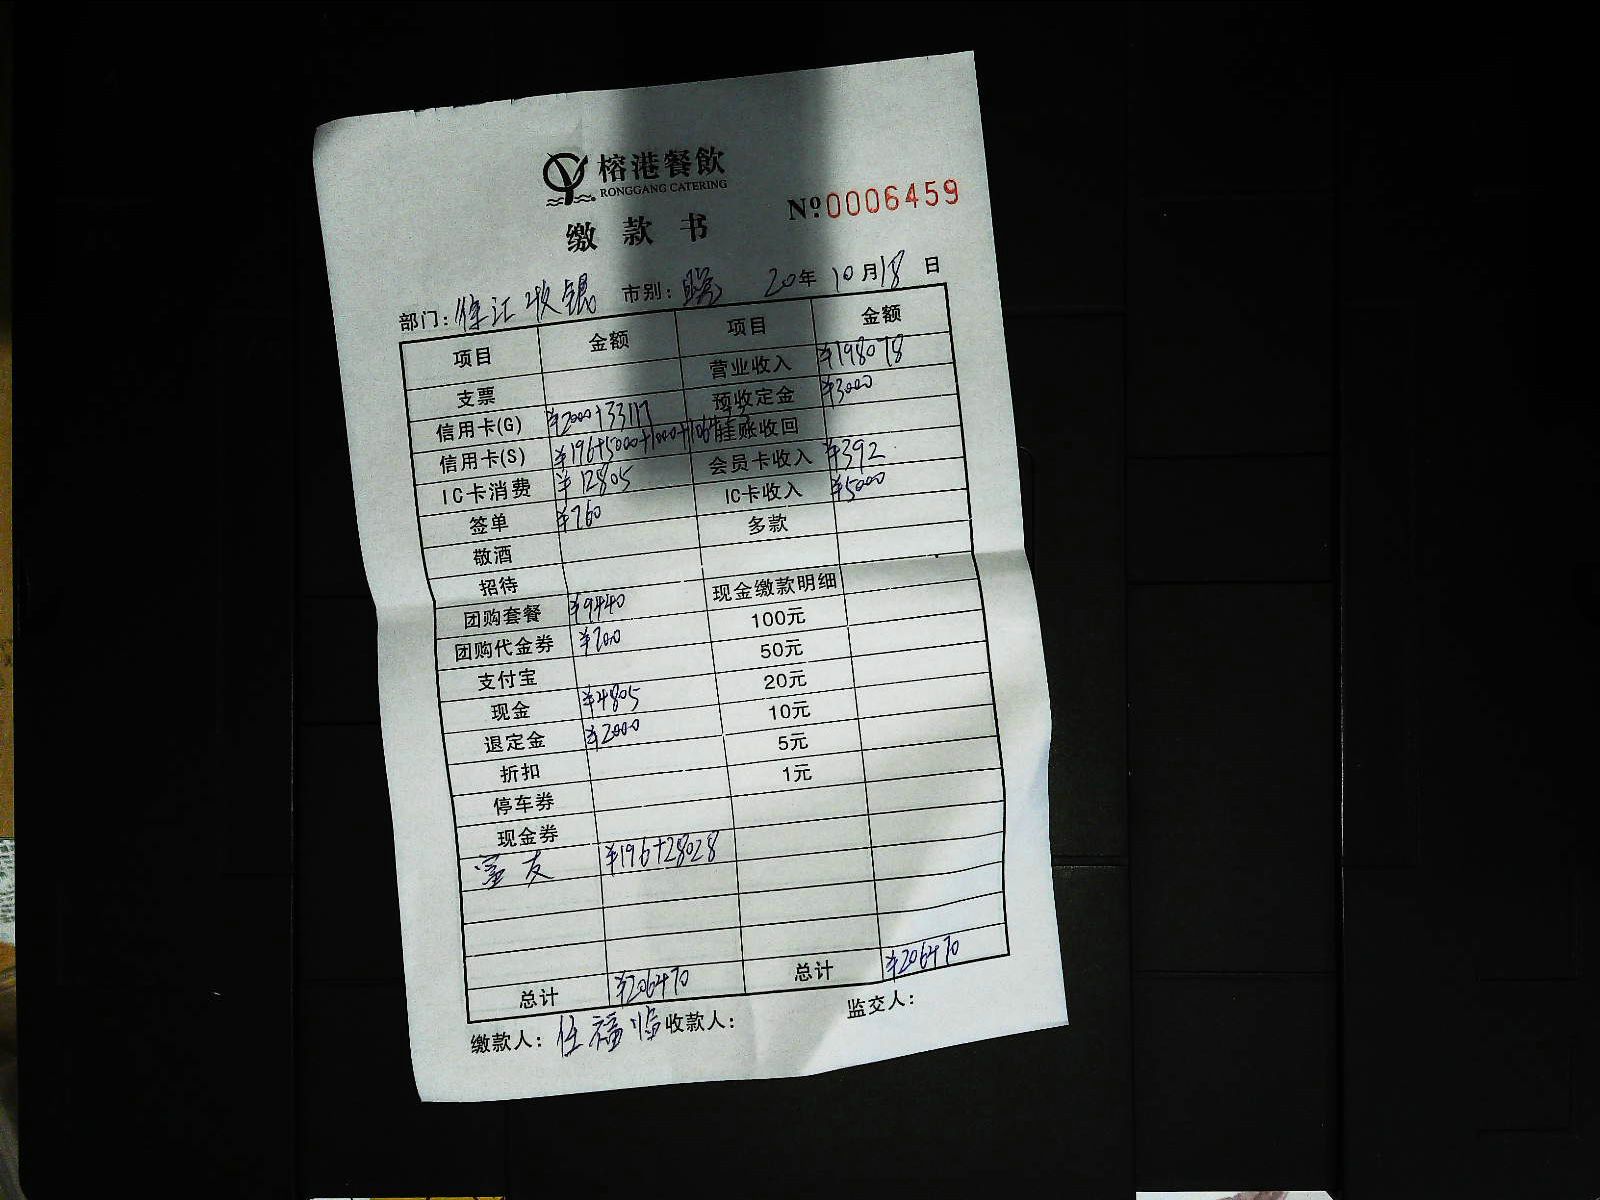 榕港餐飲
RONGGANG CATERING
缴款书 Nº0006459
部门: 徐汇收银 市别: 20年10月18日
项目 金额 项目 金额
支票 营业收入 ¥198078
信用卡(G) ¥2000+33117 预收定金 ¥3000
信用卡(S) ¥196+5000+1000+ 挂账收回
IC卡消费 ¥12805 会员卡收入 ¥392
签单 ¥760 IC卡收入 ¥5000
敬酒 多款
招待
团购套餐 ¥9440 现金缴款明细
团购代金券 ¥700 100元
支付宝 50元
现金 ¥4805 20元
退定金 ¥2000 10元
折扣 5元
停车券 1元
现金券
友 ¥196+28028
总计 ¥206470 总计 ¥206470
缴款人: 任福临 收款人: 监交人: